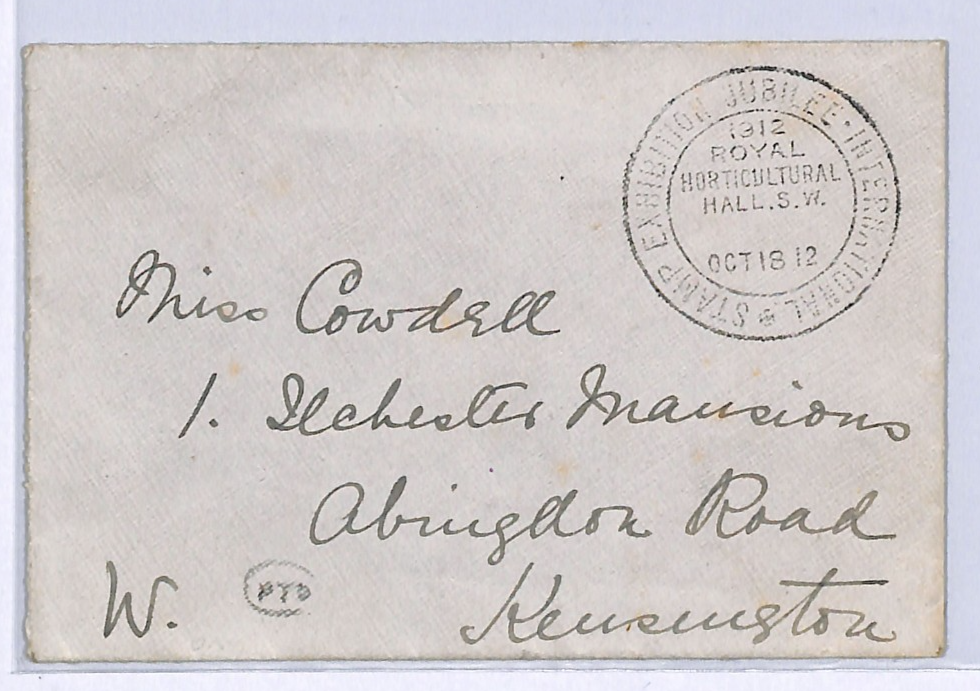 STAMP EXHIBITION JUBILEE · INTERNATIONAL
1912
ROYAL
HORTICULTURAL
HALL.S.W.
OCT 18 12
Miss Cowdell
1. Ilchester Mansions
Abingdon Road
W. Kensington